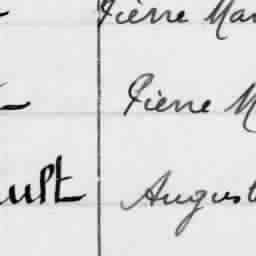 Pierre Mar
Pierre M
ault August